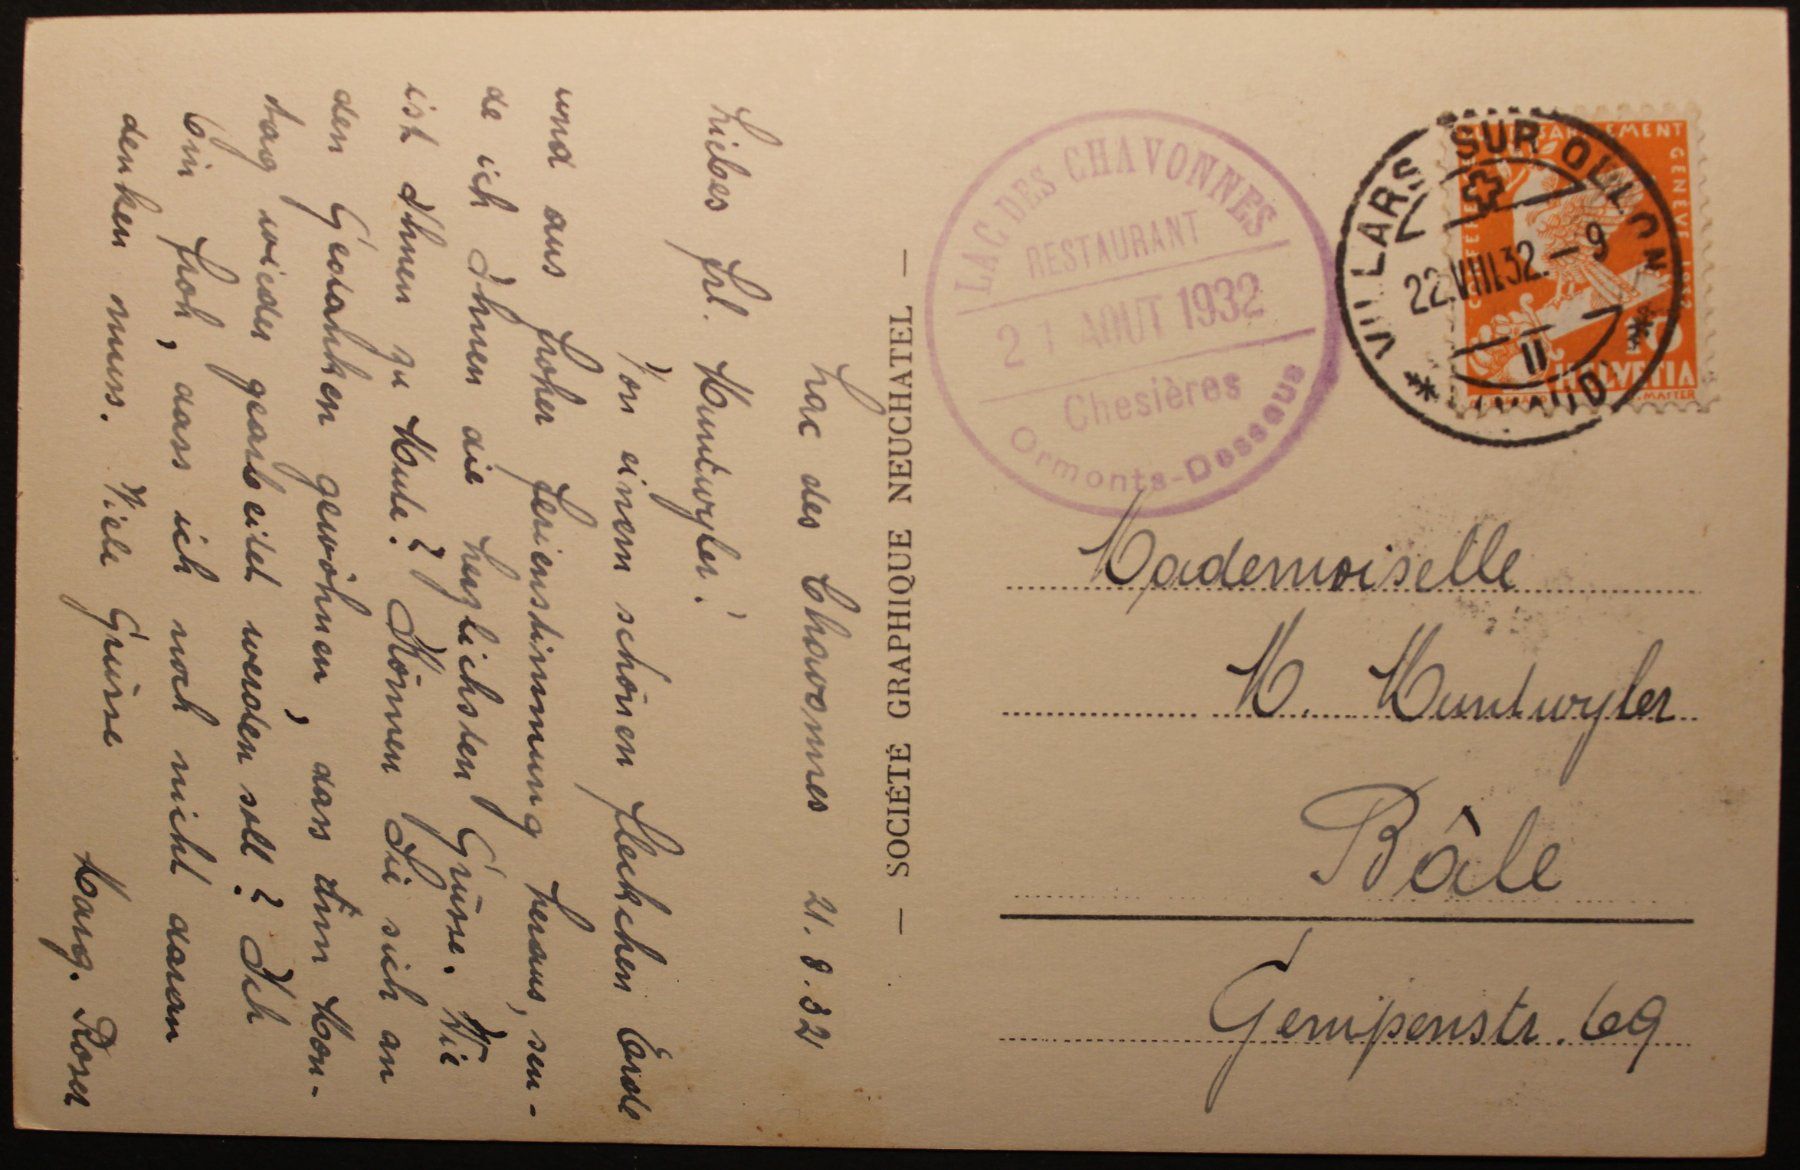 Lac des Chavonnes 21.8.32
Liebes Frl. Muntwyler!
Von einem schönen Fleckchen Erde
und aus froher Ferienstimmung heraus, sen-
de ich Ihnen die herzlichsten Grüsse. Wie
ist Ihnen zu Mute? Können Sie sich an
den Gedanken gewöhnen, dass am Mon-
tag wieder gearbeitet werden soll? Ich
bin froh, dass ich noch nicht daran
denken muss. Viele Grüsse
Marg. Roser
— SOCIÉTÉ GRAPHIQUE NEUCHATEL —
LAC DES CHAVONNES
RESTAURANT
21 AOUT 1932
Chesières
Ormonts-Dessous
VILLARS SUR OLLON
22.VIII.32.-9
II
(VAUD)
GENÈVE 1932
HELVETIA
Mademoiselle
M. Muntwyler
Bâle
Gempenstr. 69